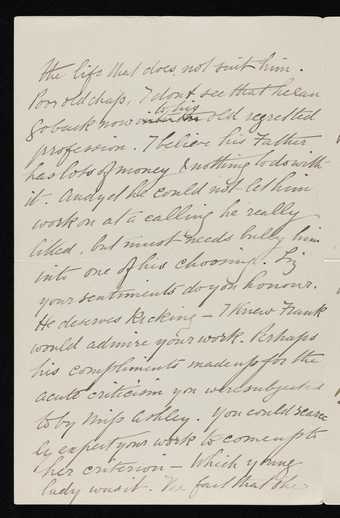 the life that does not suit him.
Poor old chap, I don't see that he can
go back now to his old regretted
profession. I believe his Father
has lots of money & nothing to do with
it. And yet he could not let him
work on at a calling he really
liked, but must needs bully him
into one of his choosing. Liz
your sentiments do you honour.
He deserves kicking — I knew Frank
would admire your work. Perhaps
his compliments made up for the
acute criticism you were subjected
to by Miss Ashley. You could scarce
ly expect your work to come up to
her criterion — Which young
lady was it. The fact that she